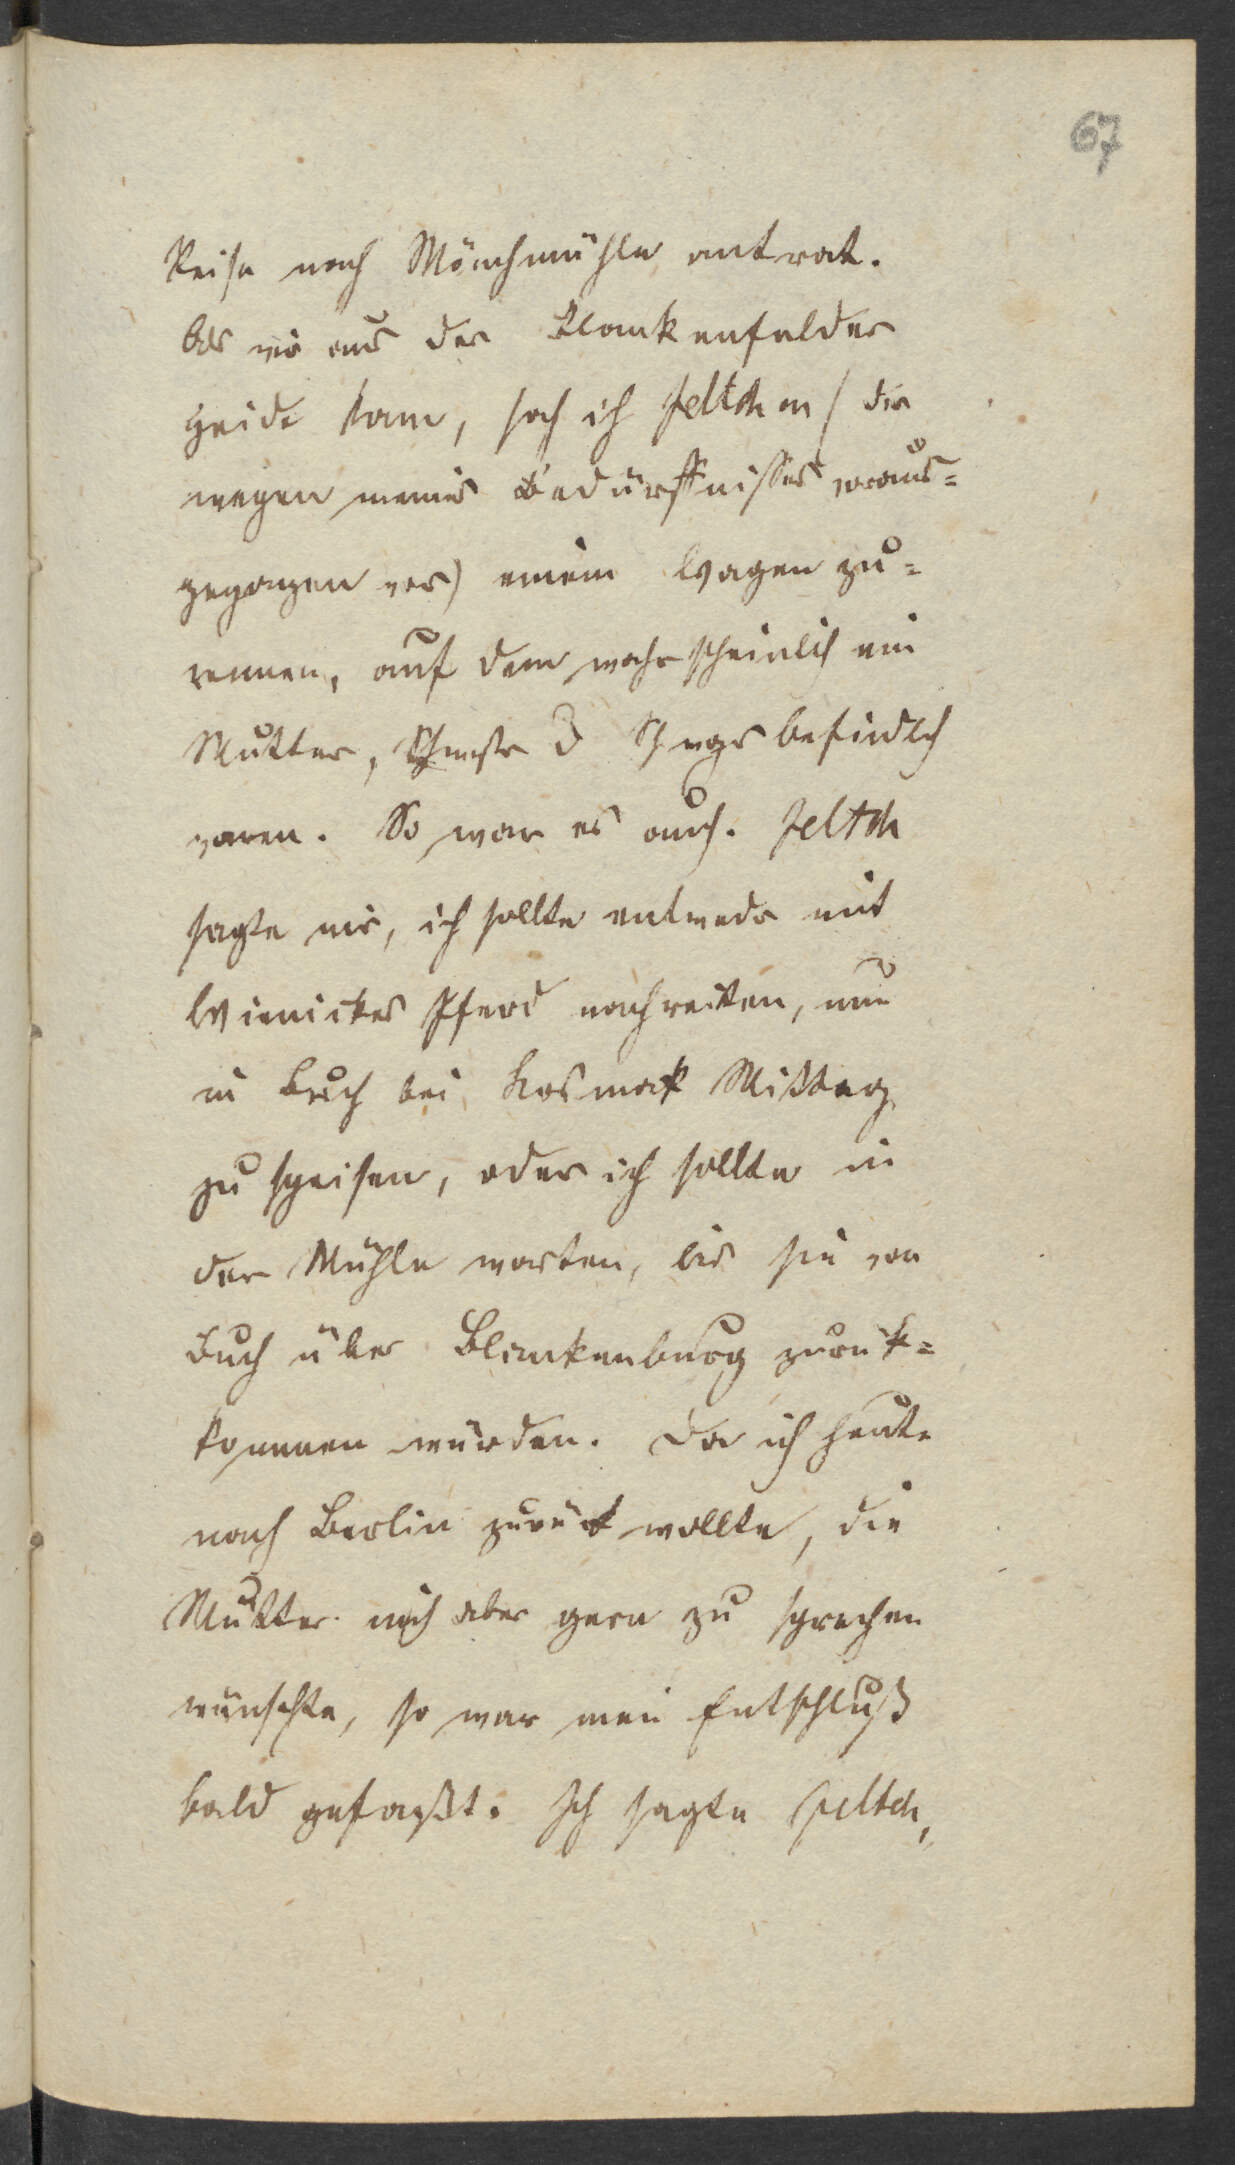 67
Reise nach Mönchmühle antrat.
Als wir aus der Blankenfelder
Heide kam, sah ich Jeltchen (die
wegen meines Bedürfnisses voraus=
gegangen war) einem Wagen zu=
rennen, auf dem wahrscheinlich ein
Mutter, befindlich
waren. So war es auch. Jeltch
sagte mir, ich sollte entweder mit
Wienickes Pferd nachreiten, um
in Buch bei Kosmak Mittag
zu speisen, oder ich sollte in
der Mühle warten, bis sie von
Buch über Blankenburg zurük=
kommen würden. Da ich heute
nach Berlin zurük wollte, die
Mutter mich aber gern zu sprechen
wünschte, so war mein Entschluß
bald gefaßt. Ich sagte Jeltch,